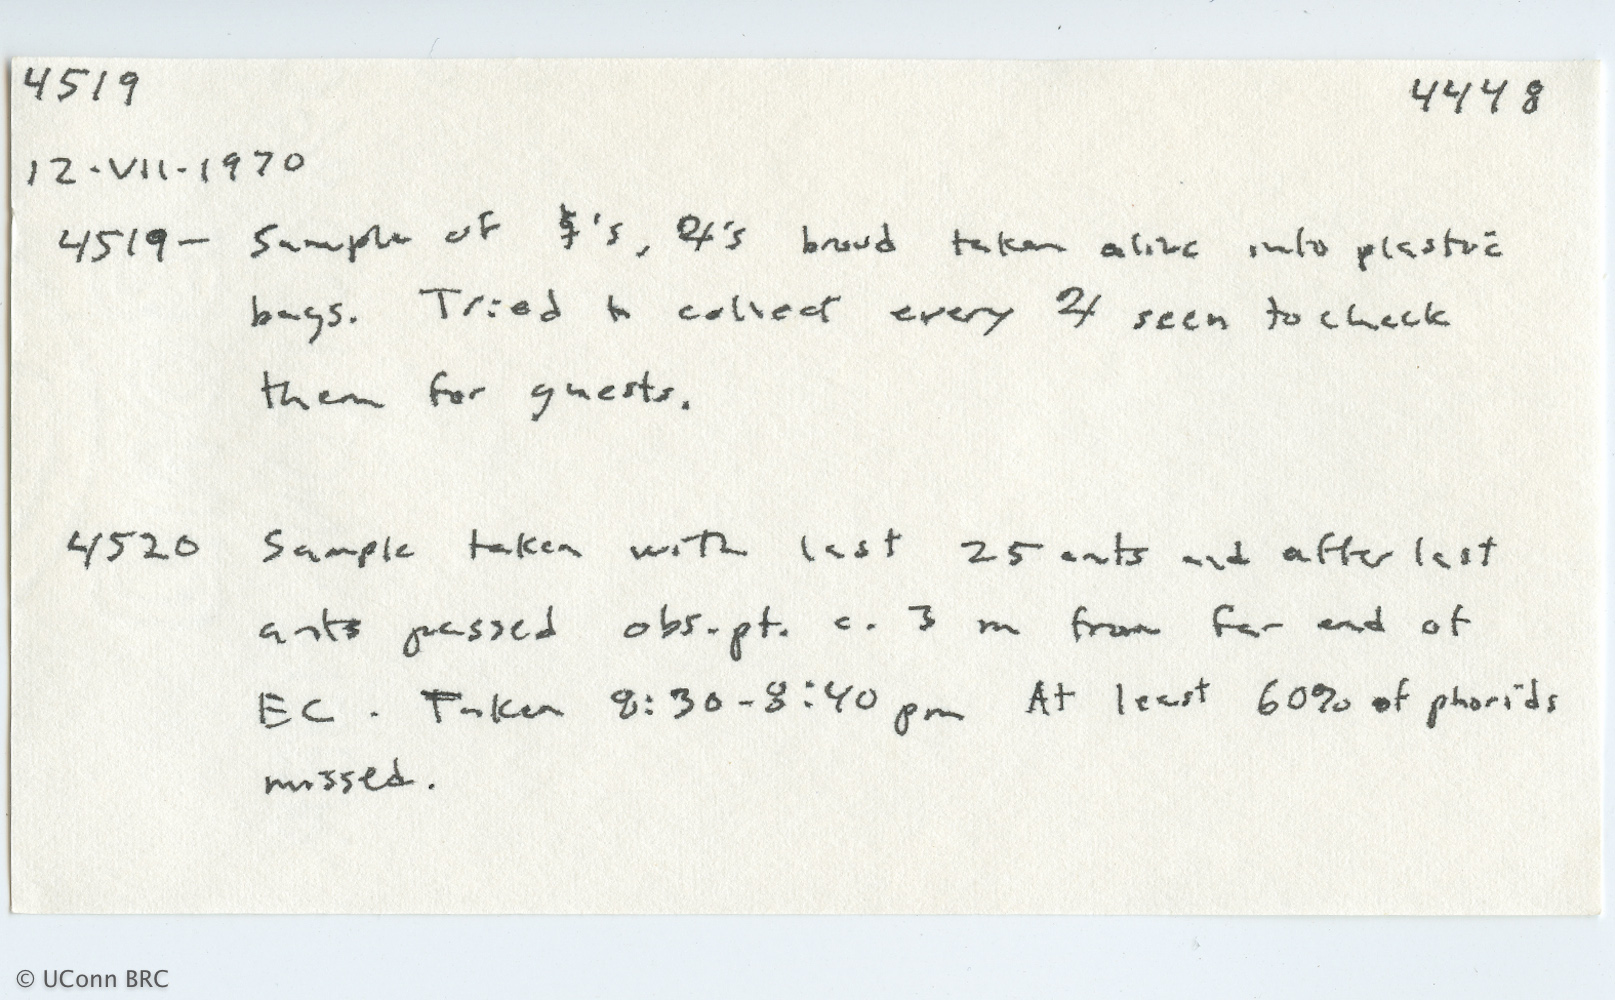 4519 4448
12-VII-1970
4519 - Sample of ☿'s, ♃'s brood taken alive into plastic
bags. Tried to collect every ♃ seen to check
them for guests.
4520 Sample taken with last 25 ants and after last
ants passed obs. pt. c. 3 m from far end of
EC. Taken 8:30-8:40 pm At least 60% of phorids
missed.
© UConn BRC